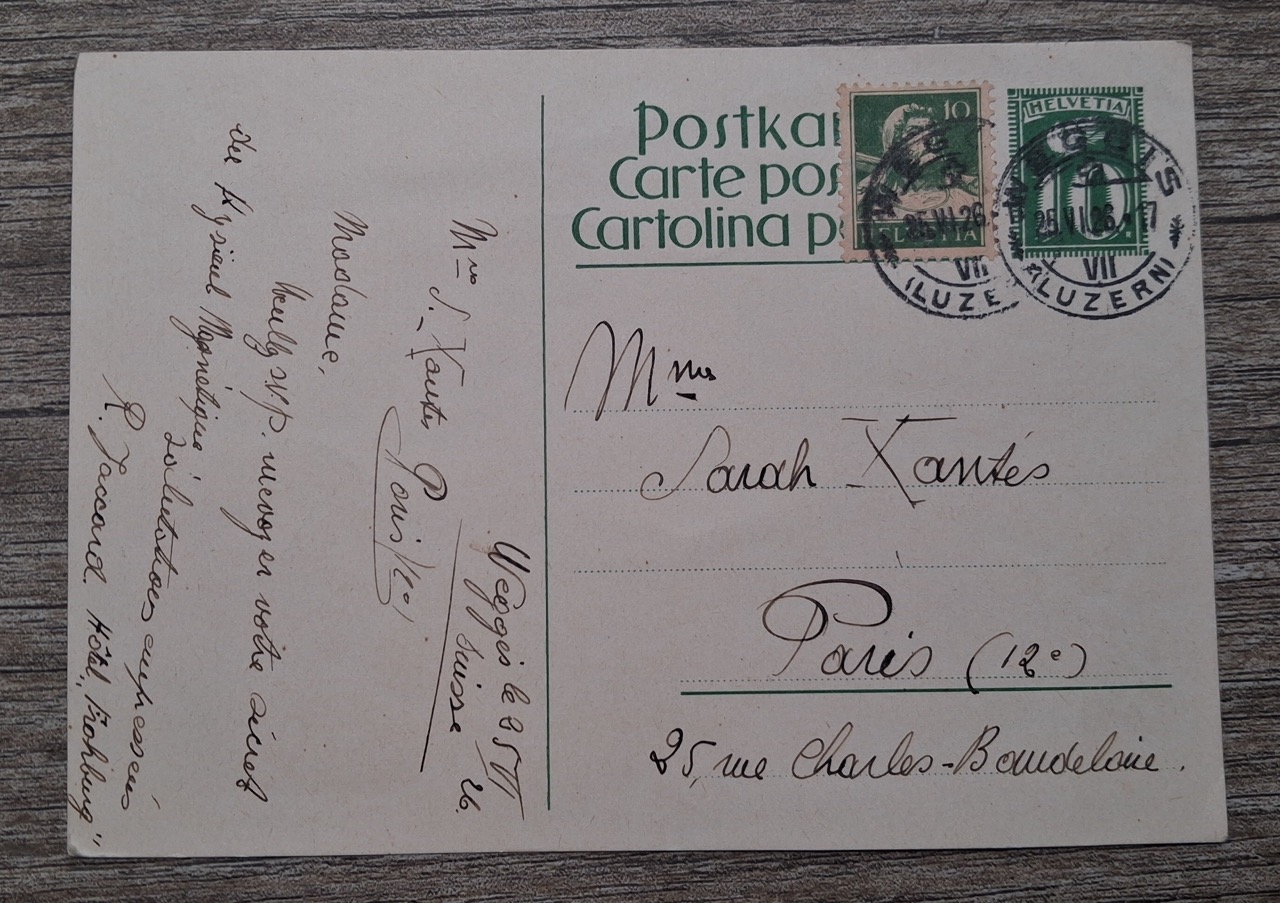 Postkar
Carte pos
Cartolina p
10
HELVETIA
HELVETIA
10
WEGGIS
25.VI.26.17
VII
(LUZERN)
WEGG
25.VI.26.
VII
(LUZE
Mme
Sarah Xantès
Paris (12e)
25, rue Charles-Baudelaire.
Weggis le 25 VI 26.
Suisse
Mme S. Xantès Paris 12e,
Madame,
Veuillez s.v.p. m'envoyer votre secret
du Hypnotique
Salutations empressées
R. Jaccard. Hôtel "Frohburg"